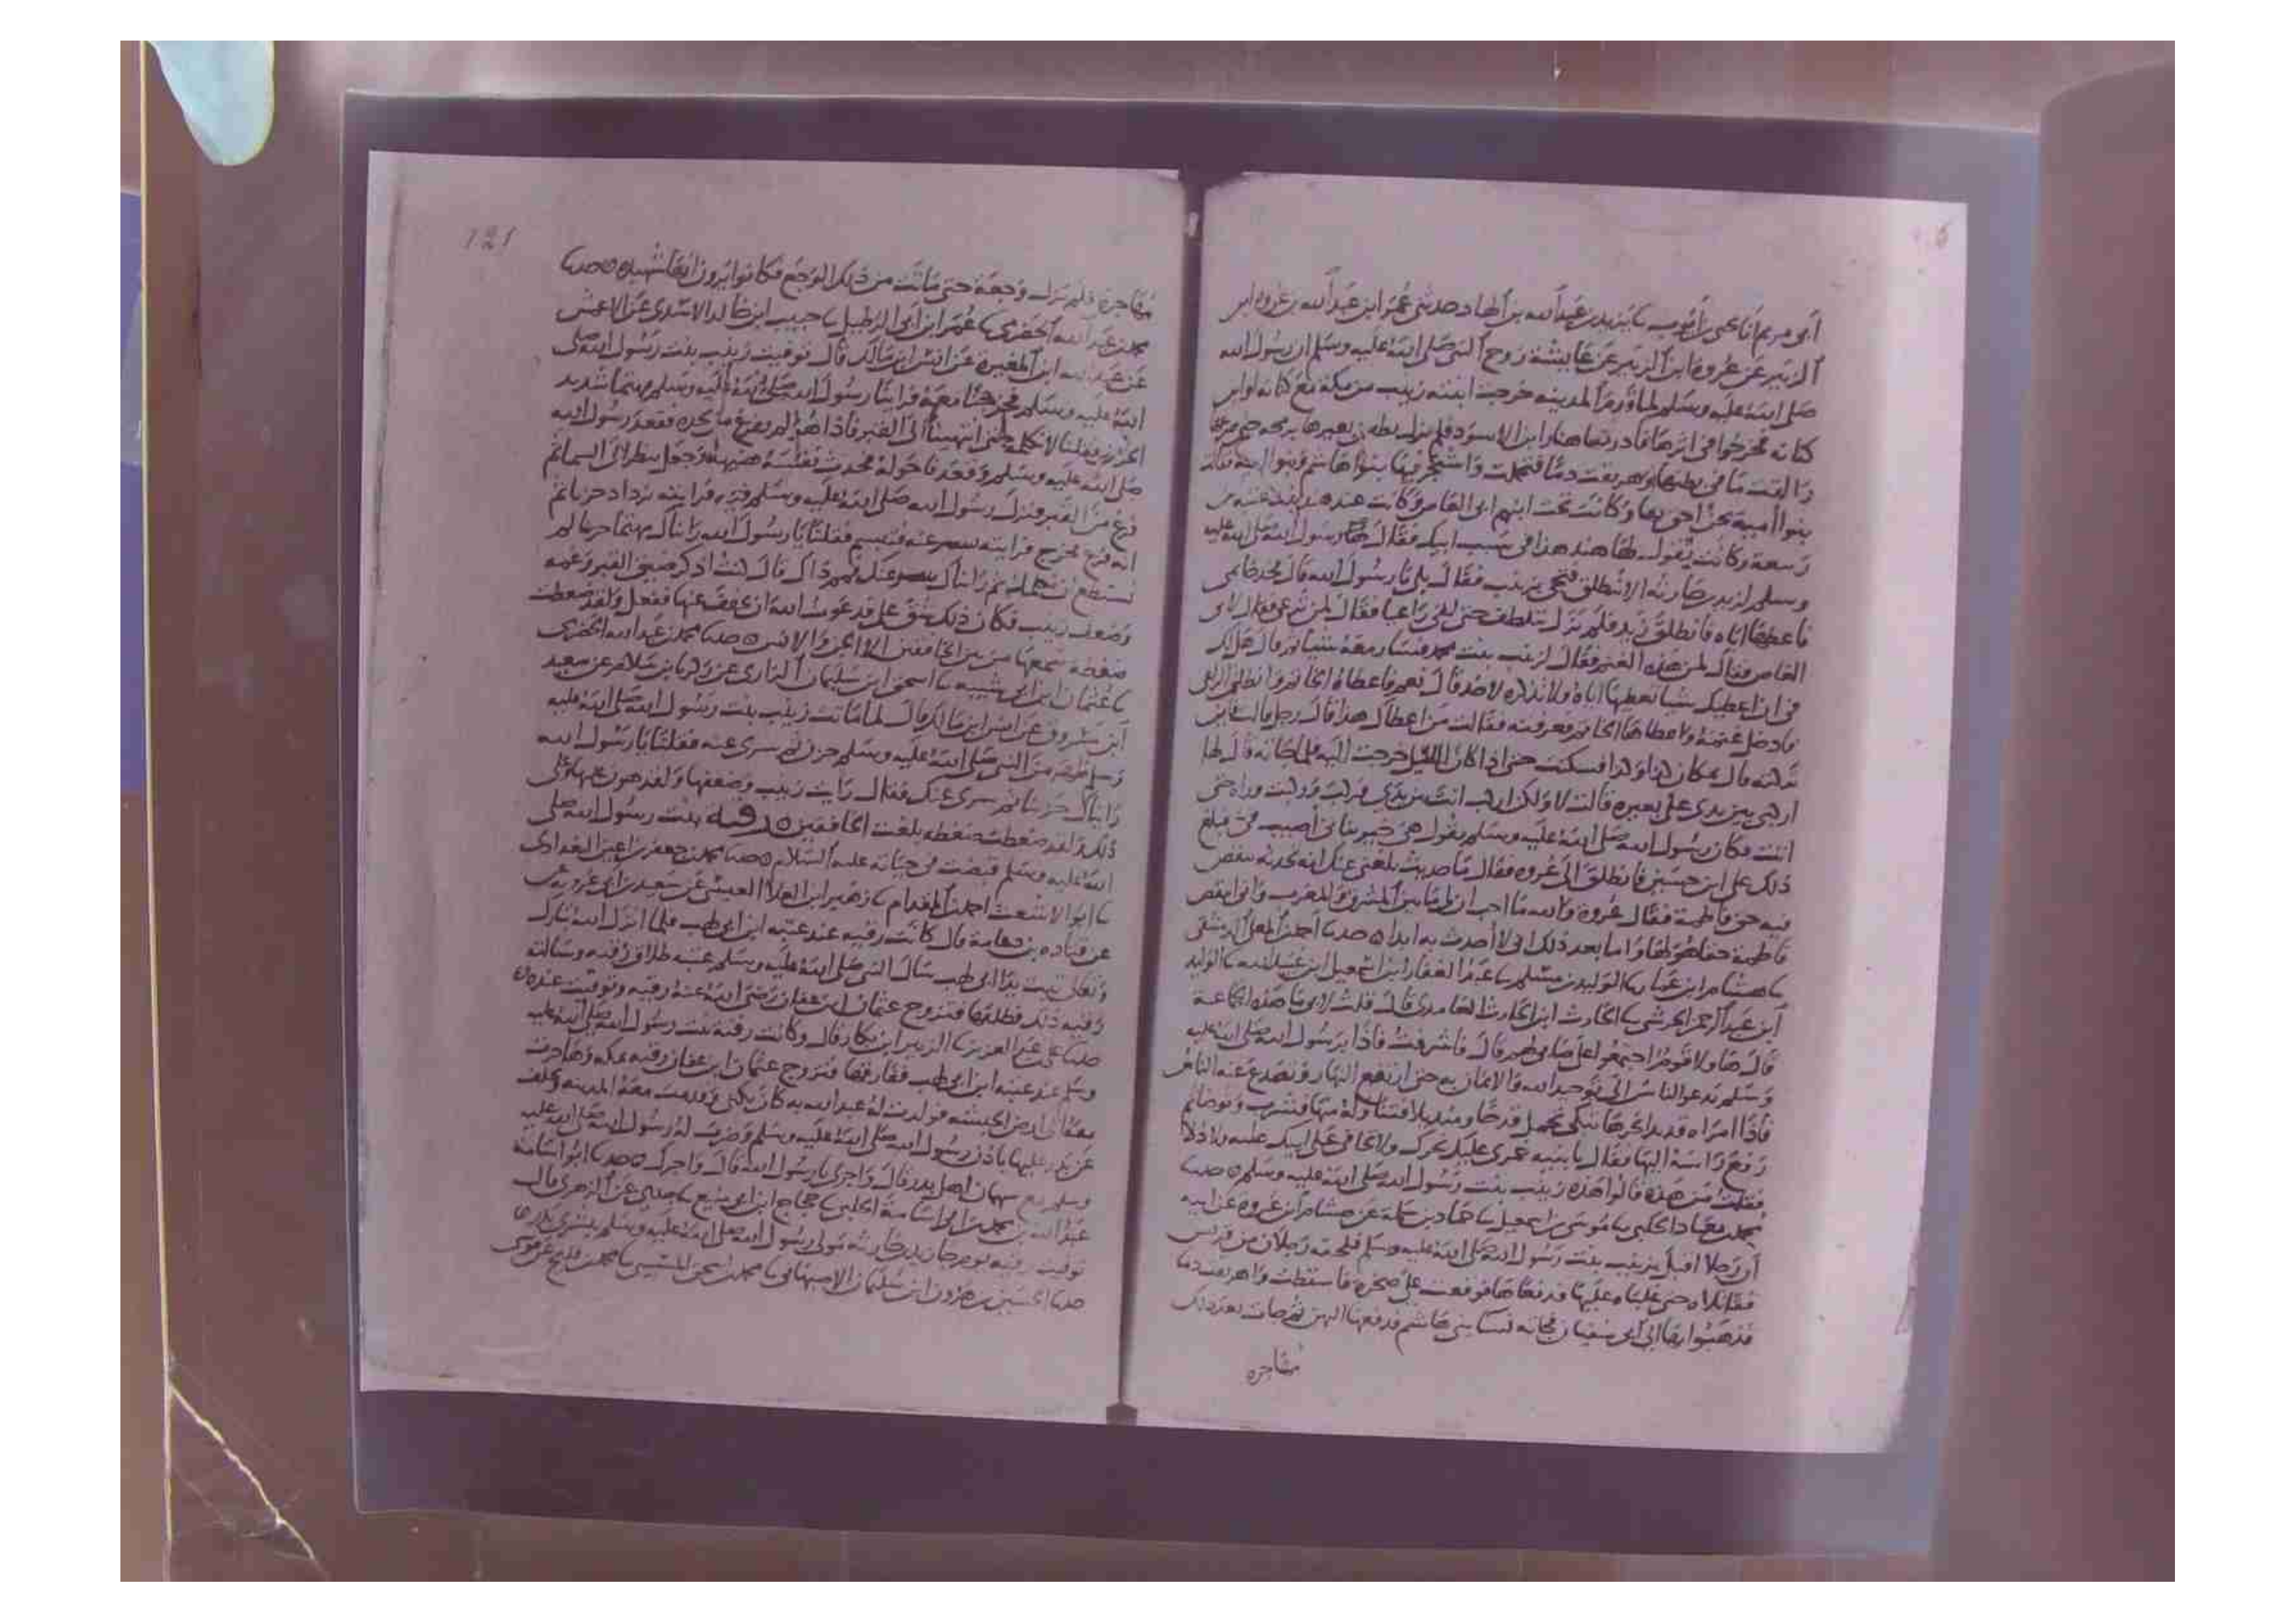 أبى مريم أنا يحيى بن أيوب نا يزيد بن عبد الله بن الهاد حدثنى عمر ابن عبد الله بن عروة ابن
الزبير عن عروة ابن الزبير عن عايشة زوج النبى صلى الله عليه وسلم ان رسول الله
صلى الله عليه وسلم لما قدم المدينه خرجت ابنته زينب من مكة مع كنانه او ابن
كنانه فخرجوا فى اثرها فادركها هبار ابن الاسود فلم يزل يطعن بعيرها برمحه حتى صرعها
والقت ما فى بطنها واهريقت دما فتحملت واشتجر فيها بنوا هاشم وبنوا امية فقالت
بنوا أمية نحن احق بها وكانت تحت ابنهم ابى العاص وكانت عند هند ابنة عتبه بن
ربيعة وكانت تقول لها هند هذا فى سبب ابيك فقال رسول الله صلى الله عليه
وسلم لزيد بن حارثة الا تنطلق فتجى بزينب فقال بلى يا رسول الله قال فخذ خاتمى
فأعطها اياه فانطلق زيد فلم يزل يتلطف حتى لقى راعيا فقال لمن ترعى فقال لابى
العاص فقال لمن هذه الغنم فقال لزينب بنت محمد فسار معه شيا ثم قال هل لك
فى ان اعطيك شيا تعطها اياه ولا تذكره لاحد قال نعم فاعطاه الخاتم وانطلق الراعى
فادخل غنمه واعطاها الخاتم فعرفته فقالت من اعطاك هذا قال رجل قالت فاين
تركته قال بمكان كذا وكذا فسكتت حتى اذا كان الليل خرجت اليه فلما جاته قال لها
اركبى بين يدى على بعيره قالت لا ولكن اركب انت بين يدى فركب وركبت وراه حتى
اتت فكان رسول الله صلى الله عليه وسلم يقول هى خير بناتى اصيبت فى فبلغ
ذلك على ابن حسين فانطلق الى عروه فقال ما حديث بلغنى عنك انه تحدثه تنقص
فيه حق فاطمة فقال عروة والله ما احب ان لى ما بين المشرق والمغرب وانى انتقص
فاطمة حقا هو لها واما بعد ذلك انى لا أحدث به ابدا ٥ حدثنا احمد بن المعلى الدمشقى
نا هشام ابن عمار نا الوليد بن مسلم نا عبد الغفار ابن اسمعيل ابن عبيد الله نا الوليد
ابن عبد الرحمن الجرشى نا الحارث ابن الحارث الغامدى قال قلت لابى ما هذه الجماعة
قال هاولا قوم اجتمعوا على صابى لهم قال فاشرفت فاذا برسول الله صلى الله عليه
وسلم يدعو الناس الى توحيد الله والايمان به حتى ارتفع النهار وتصدع عنه الناس
فاذا امراه قد بدا نحرها تبكى تحمل قدحا ومنديلا فتناوله منها فشرب وتوضا ثم
رفع راسه اليها فقال يا بنيه خمرى عليك نحرك ولا تخافى على ابيك غلبه ولا ذلا
فقلت من هذه قالوا هذه زينب بنت رسول الله صلى الله عليه وسلم ٥ حدثنا
محمد بن معاد الحلبى نا موسى بن اسمعيل نا حماد بن سلمة عن هشام ابن عروه عن ابيه
أن رجلا اقبل بزينب بنت رسول الله صلى الله عليه وسلم فلحقه رجلان من قريش
فقاتلاه حتى غلباه عليها فدفعاها فوقعت على صخرة فاسقطت واهريقت دما
فذهبوا بها الى ابى سفيان فجاته نسا بنى هاشم فدفعها اليهن ثم جات بعد ذلك
مهاجره
121
مهاجرة فلم تزل وجعة حتى ماتت من ذلك الوجع فكانوا يرون انها شهيده ٥ حدثنا
محمد بن عبد الله الحضرمى نا عمر ابن ابى الرطيل نا حبيب ابن خالد الاسدى عن الاعمش
عن عبد الله ابن المغيرة عن انس ابن مالك قال توفيت زينب بنت رسول الله صلى
الله عليه وسلم فخرجنا معه فراينا رسول الله صلى الله عليه وسلم مهتما شديد
الحزن فجعلنا لا نكلمه حتى انتهينا الى القبر فاذا هو لم يفرغ من لحده فقعد رسول الله
صلى الله عليه وسلم وقعدنا حوله فحدث نفسه هنيهة وجعل ينظر الى السما ثم
فرغ من القبر فنزل رسول الله صلى الله عليه وسلم فيه فرايته يزداد حزنا ثم
انه فرغ فخرج فرايته سرى عنه فتبسم فقلنا يا رسول الله رايناك مهتما حزينا لم
نستطع نكلمك ثم رايناك سرى عنك فمم ذاك قال كنت اذكر ضيق القبر وغمه
وضعف زينب فكان ذلك يشق على فدعوت الله ان يخفف عنها ففعل ولقد ضغطت
ضغطة سمعها من بين الخافقين الا الجن والانس ٥ حدثنا محمد بن عبد الله الحضرمى
نا عثمان ابن ابى شيبه نا اسحق ابن سليمان الرازى عن زكريا بن سلام عن سعيد
ابن مسروق عن انس ابن مالك قال لما ماتت زينب بنت رسول الله صلى الله عليه
وسلم ظهر من النبى صلى الله عليه وسلم حزن ثم سرى عنه فقلنا يا رسول الله
رايناك حزينا ثم سرى عنك فقال رايت زينب وضعفها ولقد هون عليها وعلى
ذلك ولقد ضغطت ضغطه بلغت الخافقين ٥ رقيه بنت رسول الله صلى
الله عليه وسلم قبضت فى حياته عليه السلام ٥ حدثنا محمد بن جعفر بن اعين البغدادى
نا ابو الاشعث احمد بن المقدام نا زهير ابن العلا العبسى عن سعيد بن ابى عروبه عن
عن قتاده بن دعامة قال كانت رقيه عند عتبه ابن ابى لهب فلما انزل الله تبارك
وتعالى تبت يدا ابى لهب سال النبى صلى الله عليه وسلم عتبه طلاق رقيه وسالته
رقيه ذلك فطلقها فتزوج عثمان ابن عفان رضى الله عنه رقيه وتوفيت عنده ٥
حدثنا على بن عبد العزيز نا الزبير ابن بكار قال وكانت رقية بنت رسول الله صلى الله عليه
وسلم عند عتبه ابن ابى لهب ففارقها فتزوج عثمان ابن عفان رقيه بمكه وهاجرت
معه الى ارض الحبشه فولدت له عبد الله به كان يكنى وقدمت معه المدينه وتخلف
عن بدر عليها باذن رسول الله صلى الله عليه وسلم وضرب له رسول الله صلى الله عليه
وسلم مع سهمان اهل بدر قال واجرى يا رسول الله قال واجرك ٥ حدثنا ابو اسامة
عبد الله بن محمد بن ابى اسامة الحلبى نا حجاج ابن ابى منيع نا جدى عن الزهرى قال
توفيت رقيه يوم جا زيد بن حارثه مولى رسول الله صلى الله عليه وسلم ببشرى بدر ٥
حدثنا الحسين بن هرون ابن سليمان الاصبهانى نا محمد بن اسحق المسيبى نا محمد بن فليح عن موسى